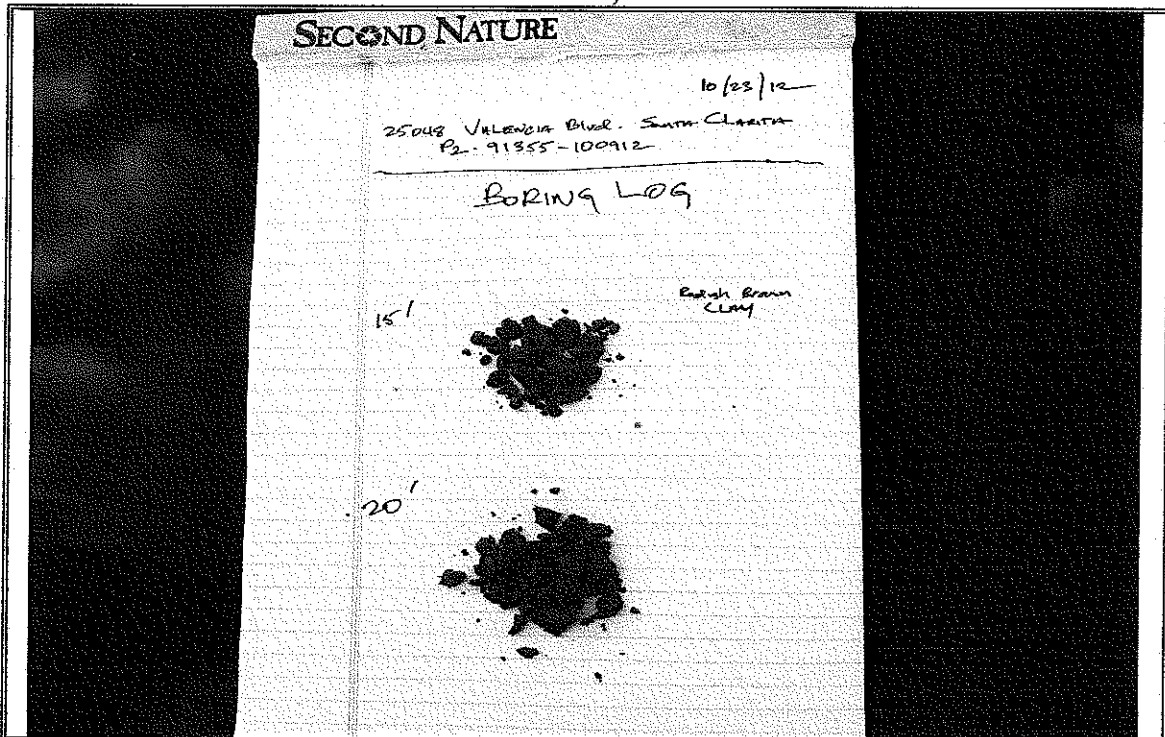 SECOND NATURE
10/23/12
25048 VALENCIA Blvd. SANTA CLARITA
P2-91355-100912
BORING LOG
15'
Redish Brown
CLAY
20'